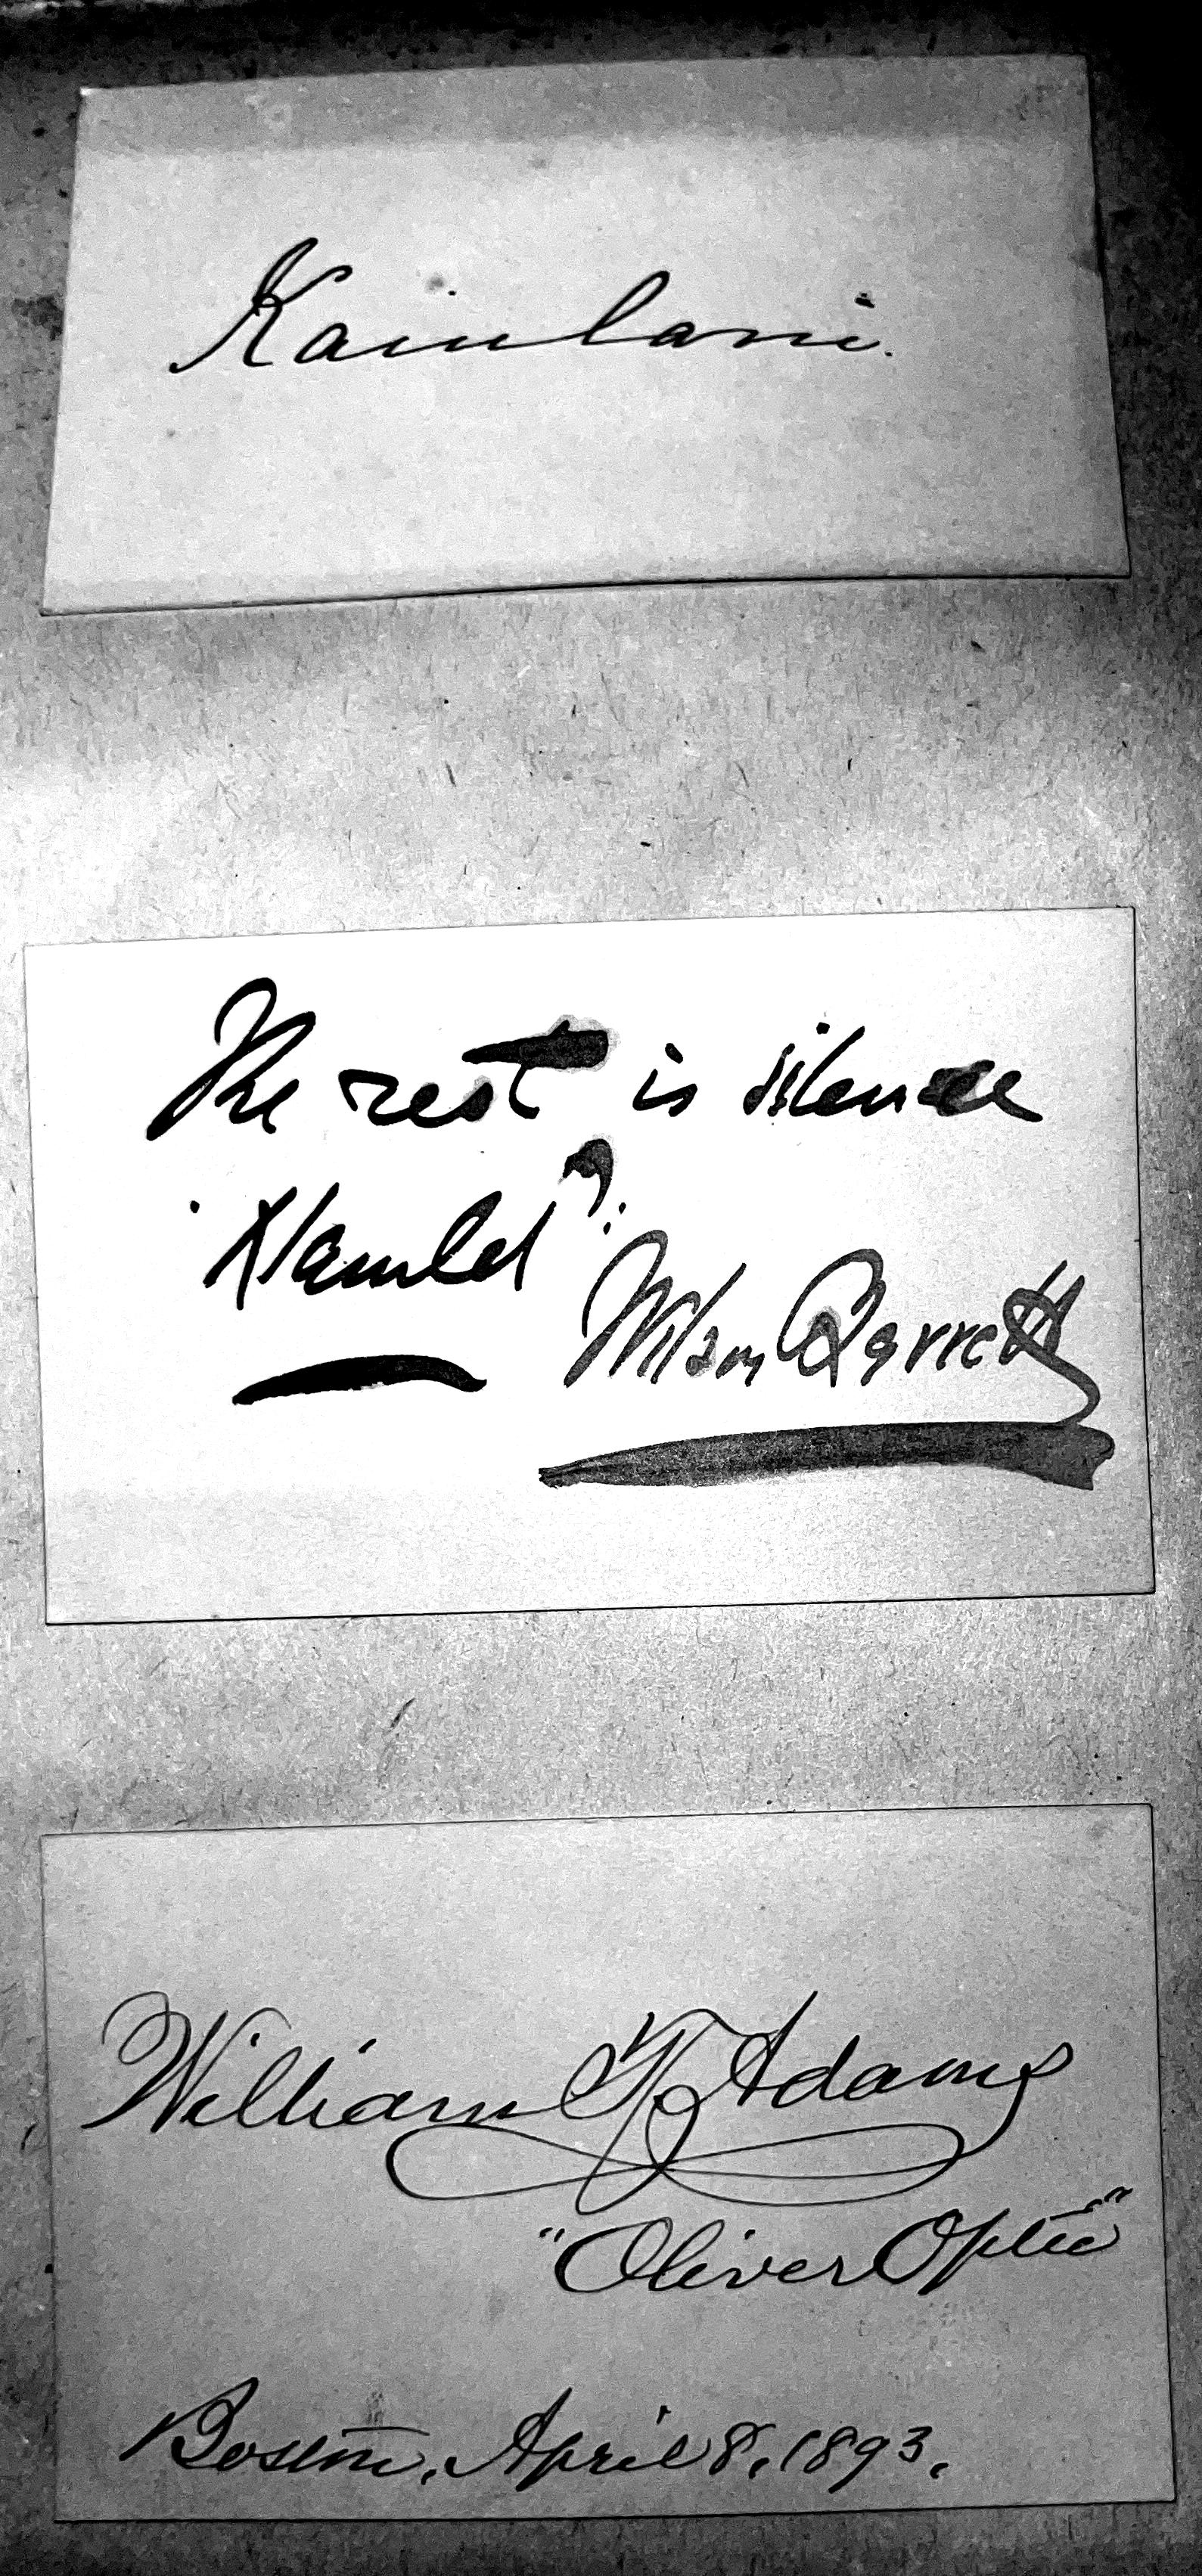 Kaiulani.
The rest is silence
"Hamlet".
Wilson Barrett
William T. Adams
"Oliver Optic"
Boston, April 8, 1893.